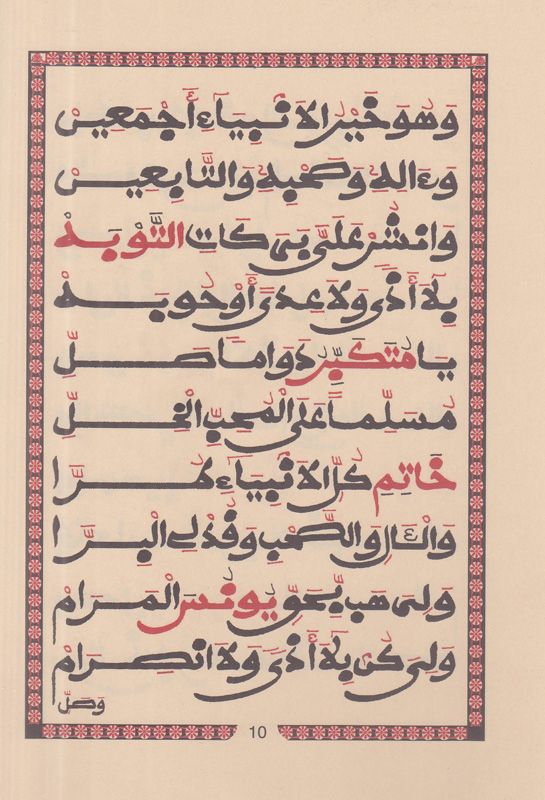 وَهُوَ خَيْرُ الَانْبِيَاءِ أَجْمَعِينْ
وَءَالِهِ وَصَحْبِهِ وَالتَّابِعِينْ
وَانْشُرْ عَلَىَّ بَىَ كَاتِ التَّوْبَهْ
بِلَا أَذًى وَلَا عِدًى أَوْ حُوبَهْ
يَا مُتَكَبِّرُ دَوَامًا صَلِّ
مُسَلِّمًا عَلَى الْمُحِبِّ الْخِلِّ
خَاتِمِ كُلِّ الَانْبِيَاءِ طُرَّا
وَالْـَٔالِ وَالصَّحْبِ وَقُدْ لِى الْبِرَّا
وَلِىَ هَبْ بِحَقِّ يُونُسَ الْمَرَامْ
وَلِىَ كُنْ بِلَا أَذًى وَلَا انْصِرَامْ
وَصَلِّ
10